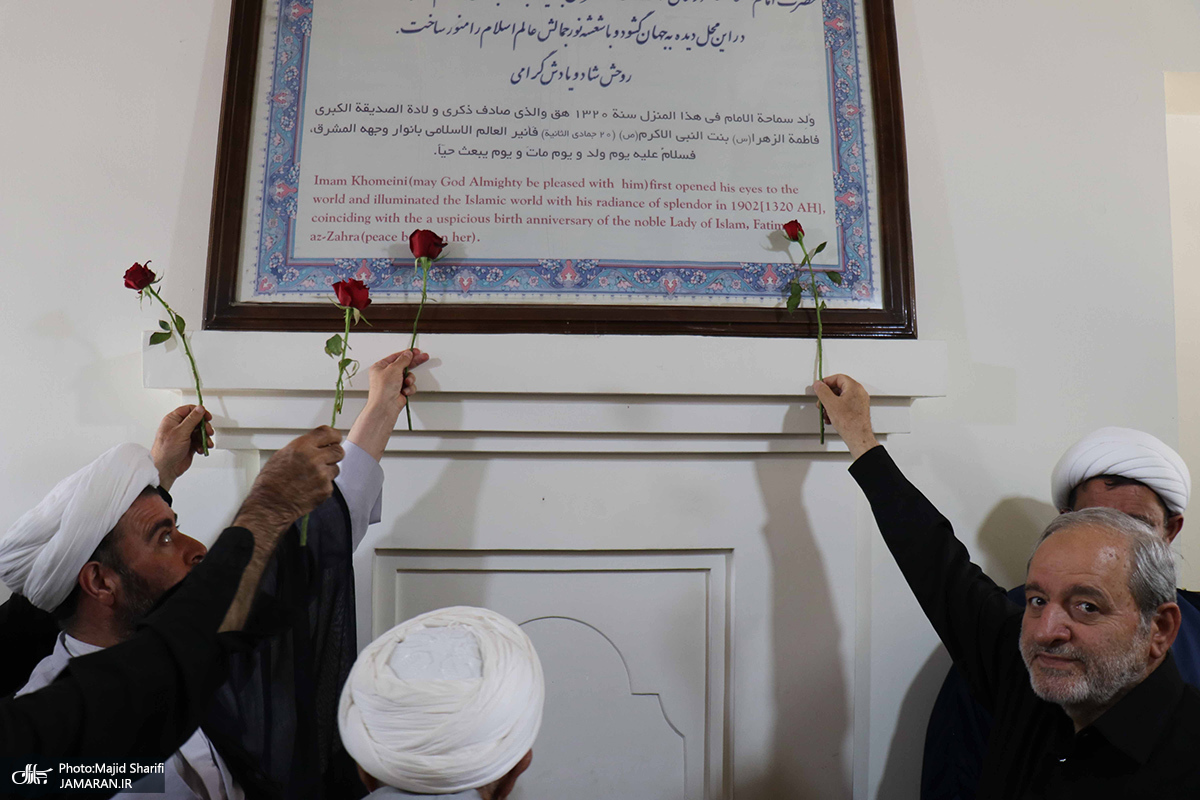 در این محل دیده به جهان گشود و با شعشعه نور جمالش عالم اسلام را منور ساخت.
روحش شاد و یادش گرامی
ولد سماحة الامام فی هذا المنزل سنة ١٣٢٠ هق والذی صادف ذکری و لادة الصدیقة الکبری
فاطمة الزهرا(س) بنت النبی الاکرم(ص) (٢٠ جمادی الثانیة) فأنیر العالم الاسلامی بانوار وجهه المشرق،
فسلامُ علیه یوم ولد و یوم مات و یوم یبعث حیاً.
Imam Khomeini(may God Almighty be pleased with him)first opened his eyes to the
world and illuminated the Islamic world with his radiance of splendor in 1902[1320 AH],
coinciding with the a uspicious birth anniversary of the noble Lady of Islam, Fatim
az-Zahra(peace b n her).
Photo:Majid Sharifi
JAMARAN.IR